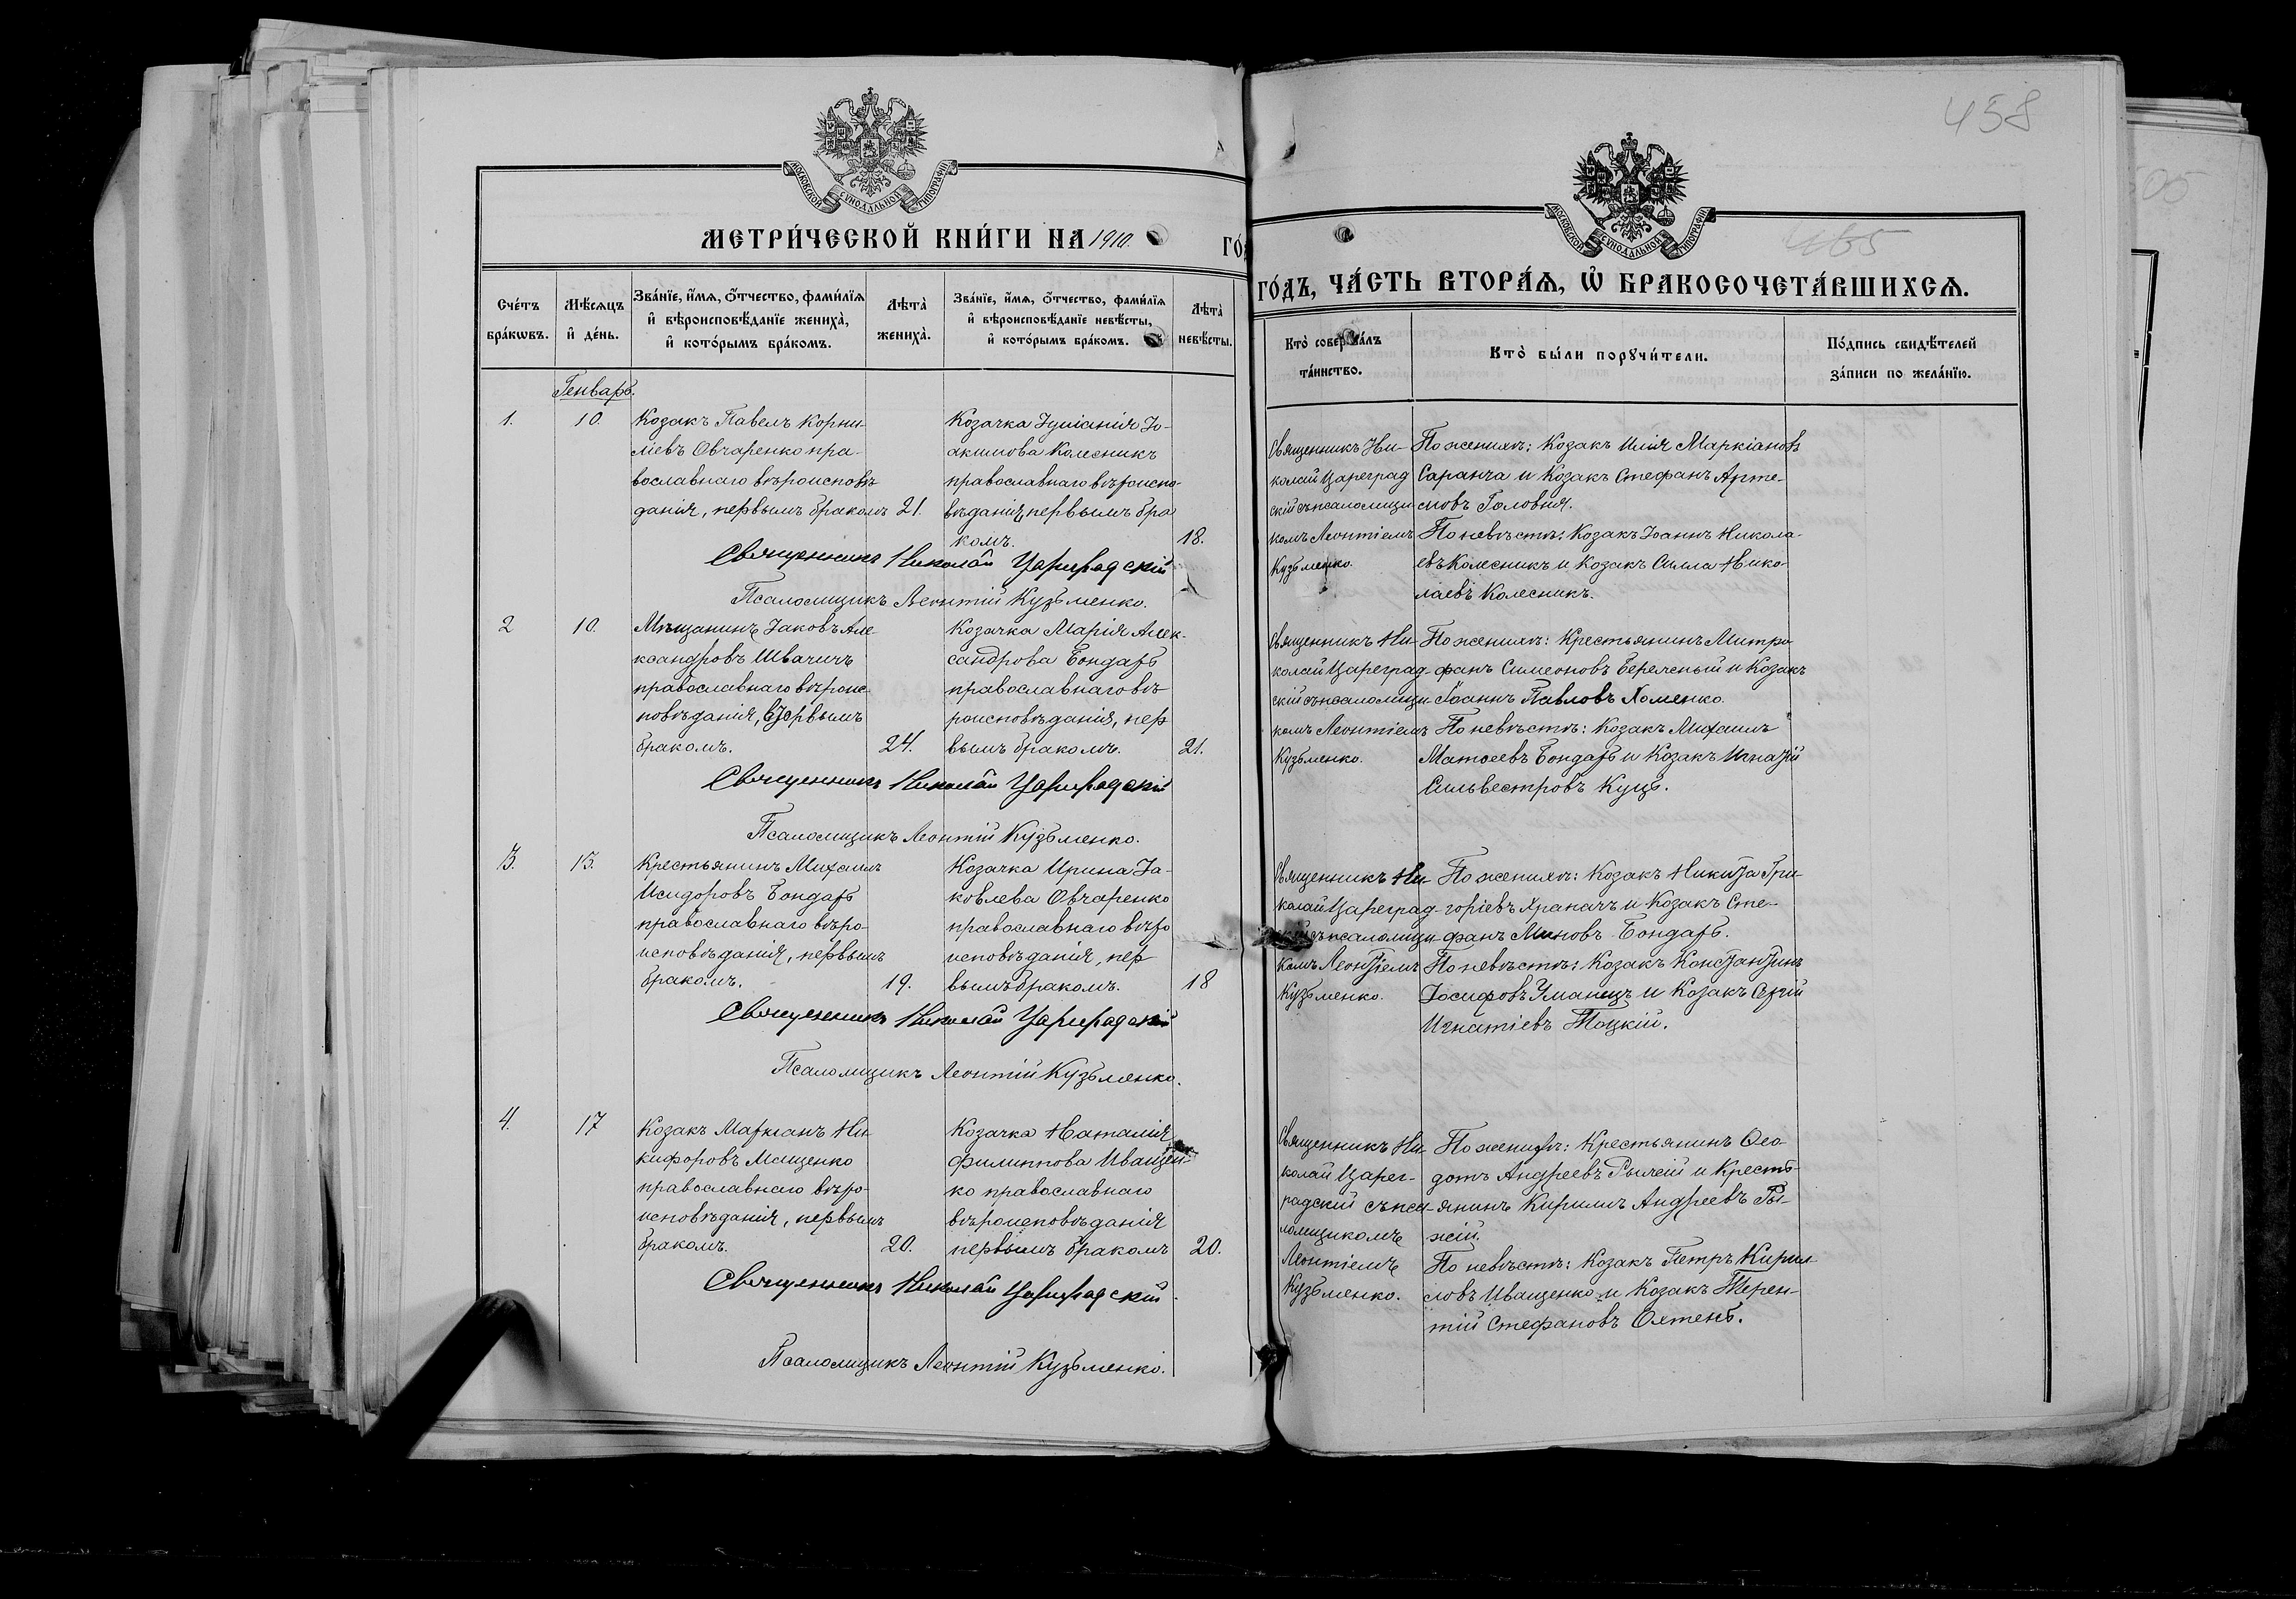 458
505
465
МОСКОВСКОЙ СѴНОДАЛЬНОЙ ТИПОГРАФІИ
МЕТРИ́ЧЕСКОЙ КНИ́ГИ НА 1910.
Сче́тъ бра́кѡвъ.
Мѣ́сяцъ и҆ де́нь.
Зва́нїе, и҆́мѧ, ѻ҆́тчество, фами́лїѧ и҆ вѣроисповѣ́данїе жениха̀, и҆ кото́рымъ бра́комъ.
Лѣта̀ жениха̀.
Зва́нїе, и҆́мѧ, ѻ҆́тчество, фами́лїѧ и҆ вѣроисповѣ́данїе невѣ́сты, и҆ кото́рымъ бра́комъ.
Лѣта̀ невѣ́сты.
Генварь.
1.
10.
Козакъ Павелъ Корни-
ліевъ Овчаренко пра-
вославнаго вѣроисповѣ
данія, первымъ бракомъ
21.
Козачка Іуліанія Іо-
акимова Колесникъ
православнаго вѣроиспо-
вѣданія, первымъ бра
комъ.
18.
Священникъ Николай Цареградскій
Псаломщикъ Леонтій Кузьменко.
2
10.
Мѣщанинъ Іаковъ Але-
ксандровъ Швачичъ
православнаго вѣроис-
повѣданія, первымъ
бракомъ.
24.
Козачка Марія Алек-
сандрова Бондарь
православнаго вѣ
роисповѣданія, пер
вымъ бракомъ.
21.
Священникъ Николай Цареградскій
Псаломщикъ Леонтій Кузьменко.
3.
15.
Крестьянинъ Михаилъ
Исидоровъ Бондарь
православнаго вѣро-
исповѣданія, первымъ
бракомъ.
19.
Козачка Ирина Іа-
ковлева Овчаренко
православнаго вѣро
исповѣданія, пер
вымъ бракомъ.
18
Священникъ Николай Цареградскій
Псаломщикъ Леонтій Кузьменко.
4.
17
Козакъ Маркіанъ Ни
кифоровъ Мащенко
православнаго вѣро-
исповѣданія, первымъ
бракомъ.
20.
Козачка Наталія
Филиппова Иващен-
ко православнаго
вѣроисповѣданія
первымъ бракомъ
20.
Священникъ Николай Цареградскій
Псаломщикъ Леонтій Кузьменко.
МОСКОВСКОЙ СѴНОДАЛЬНОЙ ТИПОГРАФІИ
ГО́ДЪ, ЧА́СТЬ ВТОРА́Ѧ, Ѡ҆ БРАКОСОЧЕТА́ВШИХСѦ.
Кто̀ соверша́лъ та́инство.
Кто̀ бы́ли порꙋчи́тели.
По́дпись свидѣ́телей за́писи по жела́нїю.
Священникъ Ни-
колай Цареград
скій съ псаломщи
комъ Леонтіемъ
Кузьменко.
По женихѣ: Козакъ Илія Маркіановъ
Саранча и Козакъ Стефанъ Арте-
мовъ Головня.
По невѣстѣ: Козакъ Іоаннъ Никола-
евъ Колесникъ и Козакъ Силла Нико-
лаевъ Колесникъ.
Священникъ Ни-
колай Цареград-
скій съ псаломщи-
комъ Леонтіемъ
Кузьменко.
По женихѣ: Крестьянинъ Митро-
фанъ Симеоновъ и Козакъ
Іоаннъ Павловъ Хоменко.
По невѣстѣ: Козакъ Михаилъ
Матѳеевъ Бондарь и Козакъ Игнатій
Сильвестровъ Куцъ.
Священникъ Ни-
колай Цареград-
скій съ псаломщи-
комъ Леонтіемъ
Кузьменко.
По женихѣ: Козакъ Никита Гри-
горіевъ Храпачъ и Козакъ Сте-
фанъ Миновъ Бондарь.
По невѣстѣ: Козакъ Константинъ
Іосифовъ Уманецъ и Козакъ Сергій
Игнатіевъ Тоцкій.
Священникъ Ни-
колай Царег-
радскій съ пса-
ломщикомъ
Леонтіемъ
Кузьменко.
По женихѣ: Крестьянинъ Ѳео-
дотъ Андреевъ Рыжій и Кресть-
янинъ Кириллъ Андреевъ Ры-
жій.
По невѣстѣ: Козакъ Петръ Кирил-
ловъ Иващенко и Козакъ Терен-
тій Стефановъ Охтень.